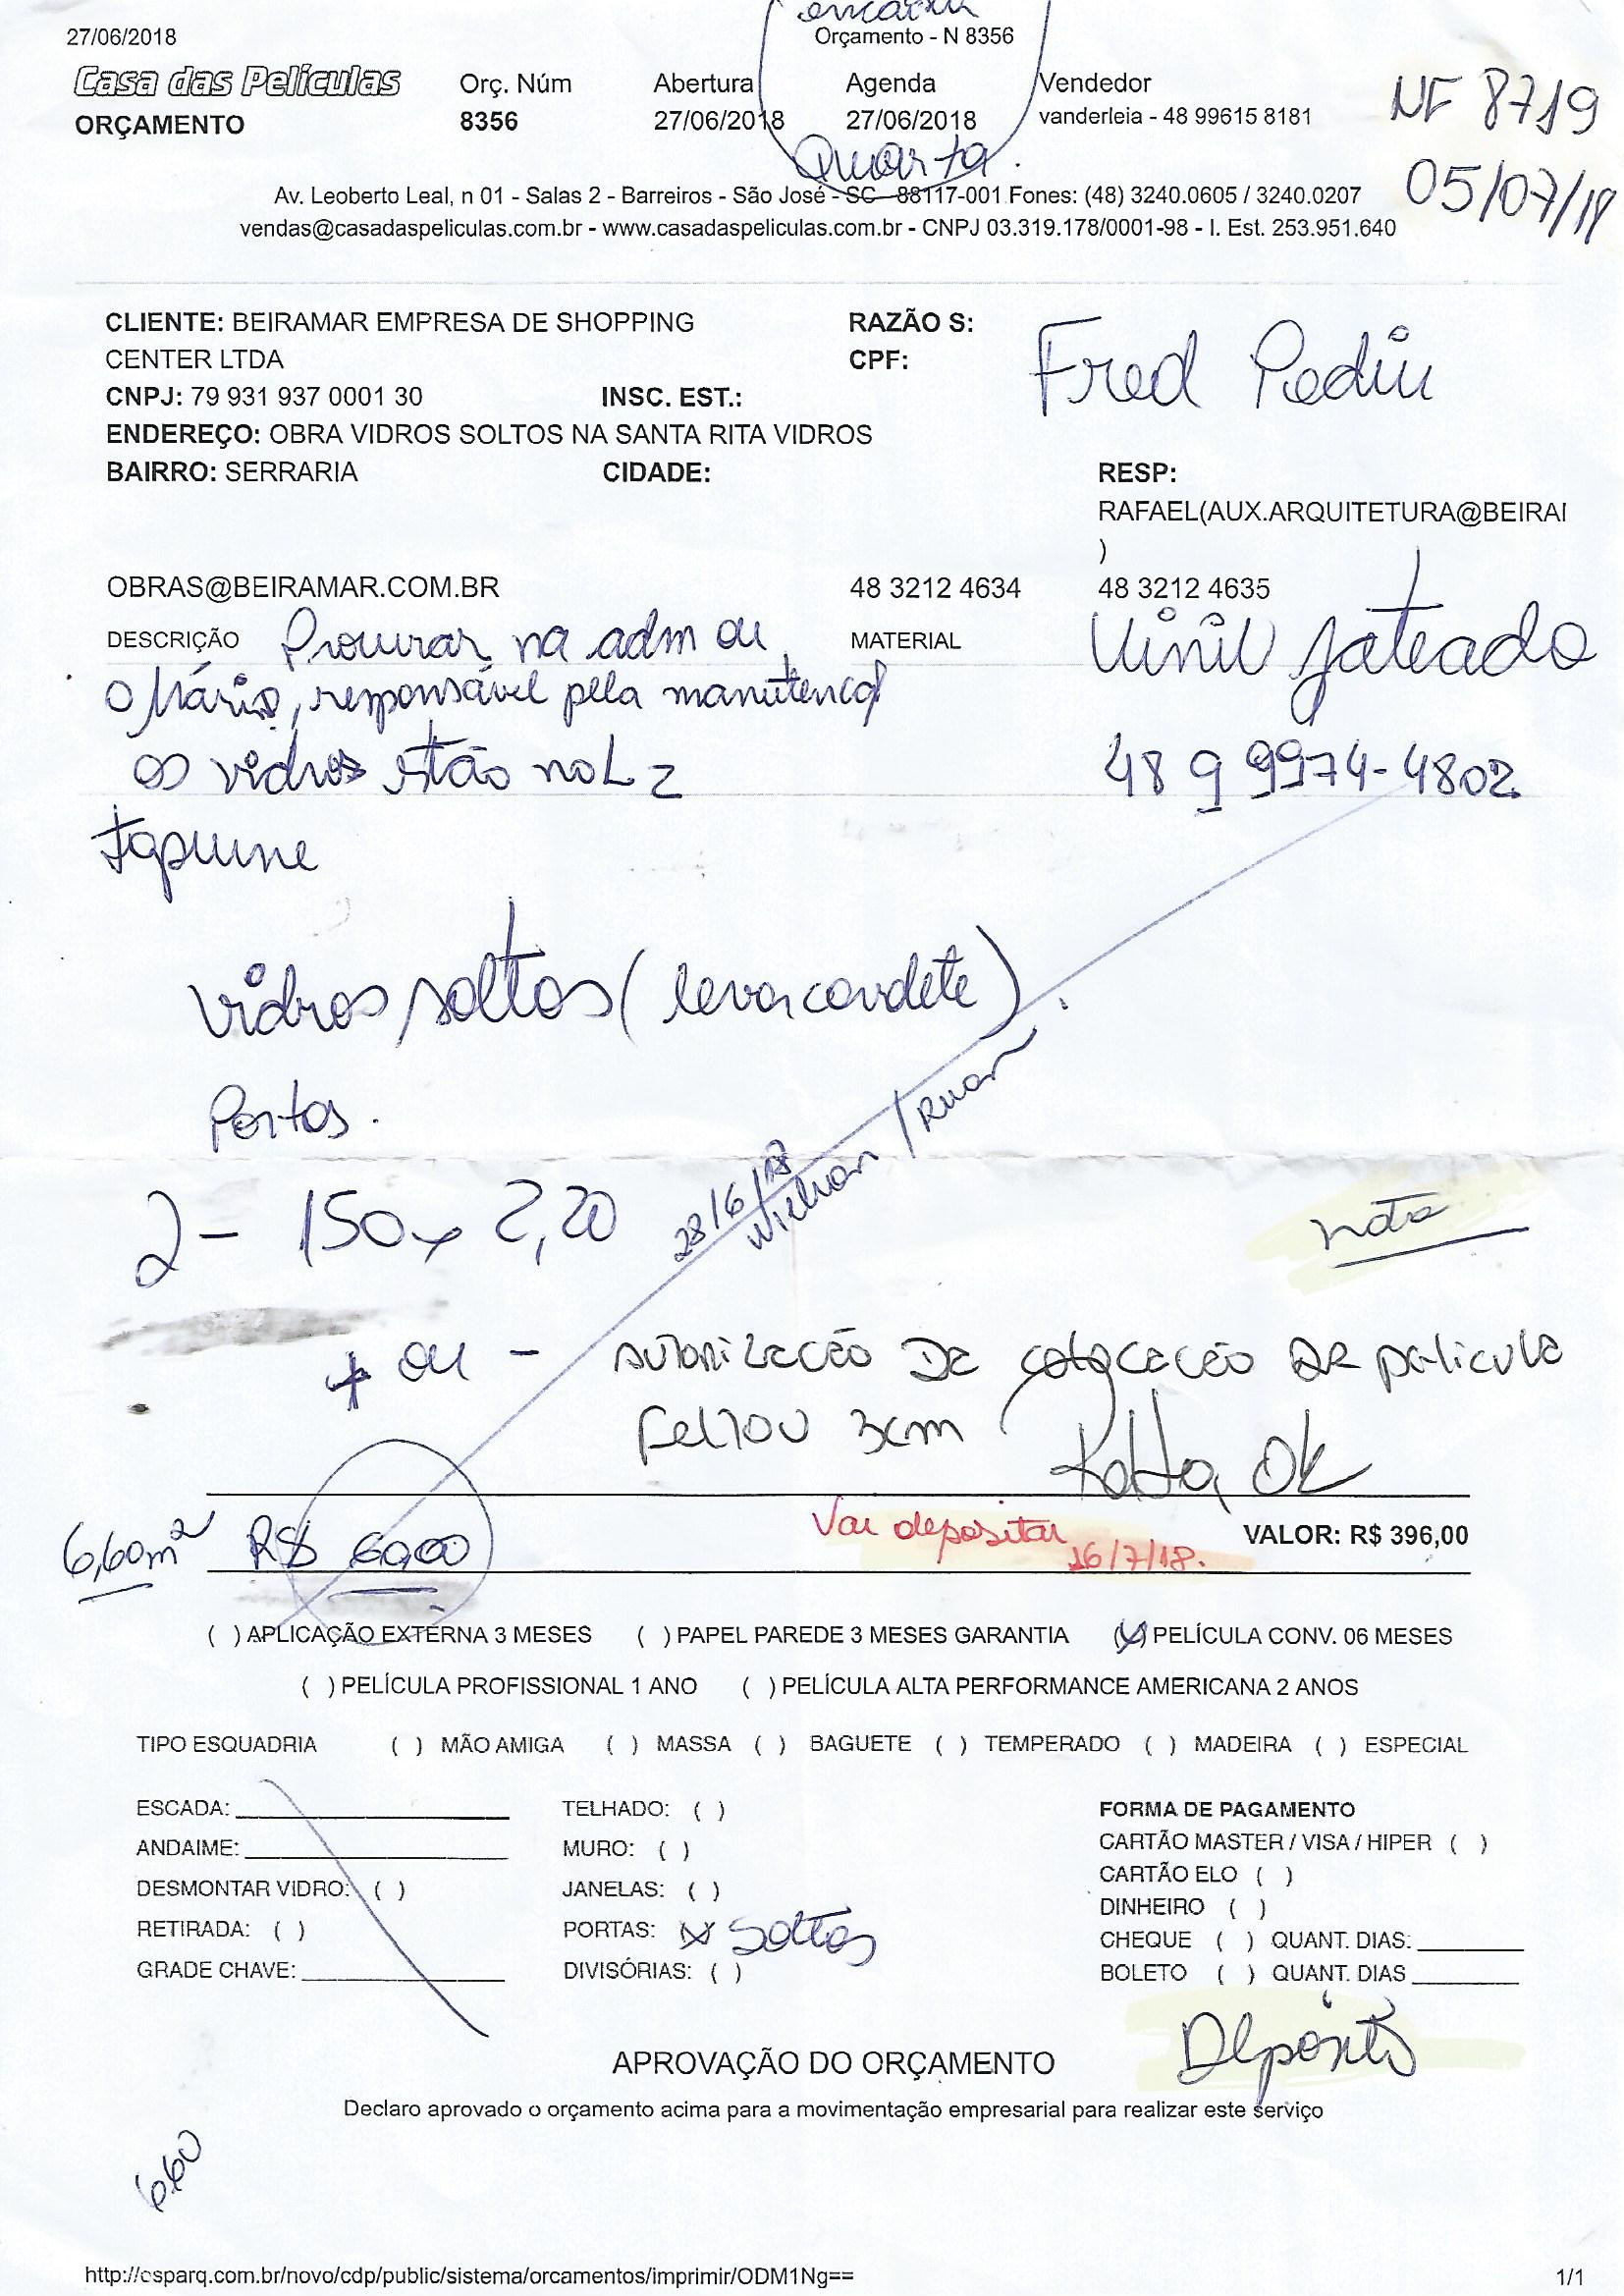 encaixe
27/06/2018
Orçamento - N 8356
Casa das Películas
ORÇAMENTO
Orç. Núm
8356
Abertura
27/06/2018
Agenda
27/06/2018
Quarta.
Vendedor
vanderleia - 48 99615 8181
NF 8719
05/07/18
Av. Leoberto Leal, n 01 - Salas 2 - Barreiros - São José - SC - 88117-001 Fones: (48) 3240.0605 / 3240.0207
vendas@casadaspeliculas.com.br - www.casadaspeliculas.com.br - CNPJ 03.319.178/0001-98 - I. Est. 253.951.640
CLIENTE: BEIRAMAR EMPRESA DE SHOPPING
CENTER LTDA
RAZÃO S:
CPF:
Fred Pediu
CNPJ: 79 931 937 0001 30
INSC. EST.:
ENDEREÇO: OBRA VIDROS SOLTOS NA SANTA RITA VIDROS
BAIRRO: SERRARIA
CIDADE:
RESP:
RAFAEL(AUX.ARQUITETURA@BEIRAI
)
OBRAS@BEIRAMAR.COM.BR
48 3212 4634
48 3212 4635
DESCRIÇÃO Procurar na adm ou
MATERIAL Vinil jateado
o Mário, responsável pela manutenção
os vidros estão no L2
48 9 9974-4802
tapume
vidros soltos (levar cavalete).
Portas.
2 - 150 x 2,20
28/6/18
/ Ruan
nota
+ ou -
AUTORIZACÃO DE COLOCACÃO DE pelicula
FALTOU 3cm
OK
6,60m² R$ 60,00
Vai depositar
16/7/18.
VALOR: R$ 396,00
( ) APLICAÇÃO EXTERNA 3 MESES ( ) PAPEL PAREDE 3 MESES GARANTIA (x) PELÍCULA CONV. 06 MESES
( ) PELÍCULA PROFISSIONAL 1 ANO ( ) PELÍCULA ALTA PERFORMANCE AMERICANA 2 ANOS
TIPO ESQUADRIA ( ) MÃO AMIGA ( ) MASSA ( ) BAGUETE ( ) TEMPERADO ( ) MADEIRA ( ) ESPECIAL
ESCADA:
TELHADO: ( )
FORMA DE PAGAMENTO
ANDAIME:
MURO: ( )
CARTÃO MASTER / VISA / HIPER ( )
DESMONTAR VIDRO: ( )
JANELAS: ( )
CARTÃO ELO ( )
RETIRADA: ( )
PORTAS: (x) Soltas
DINHEIRO ( )
GRADE CHAVE:
DIVISÓRIAS: ( )
CHEQUE ( ) QUANT. DIAS:
BOLETO ( ) QUANT. DIAS
Depósito
APROVAÇÃO DO ORÇAMENTO
Declaro aprovado o orçamento acima para a movimentação empresarial para realizar este serviço
6,60
http://esparq.com.br/novo/cdp/public/sistema/orcamentos/imprimir/ODM1Ng==
1/1